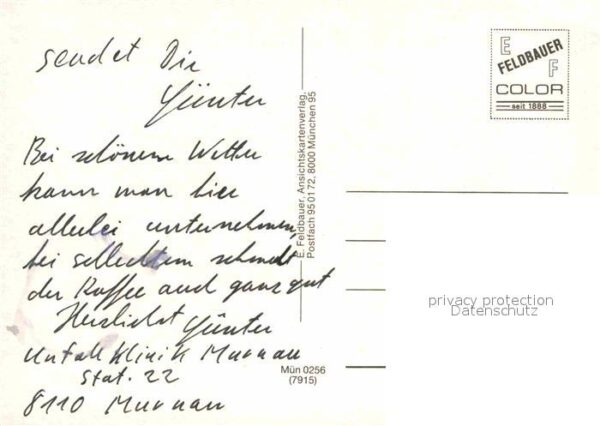 sendet Dir
Günter
Bei schönem Wetter
kann man hier
allerlei unternehmen,
bei schlechtem schmeckt
der Kaffee auch ganz gut
Herzlichst Günter
Unfallklinik Murnau
Stat. 22
8110 Murnau
E. Feldbauer, Ansichtskartenverlag,
Postfach 95 01 72, 8000 München 95
Mün 0256
(7915)
E
FELDBAUER
F
COLOR
seit 1888
privacy protection
Datenschutz